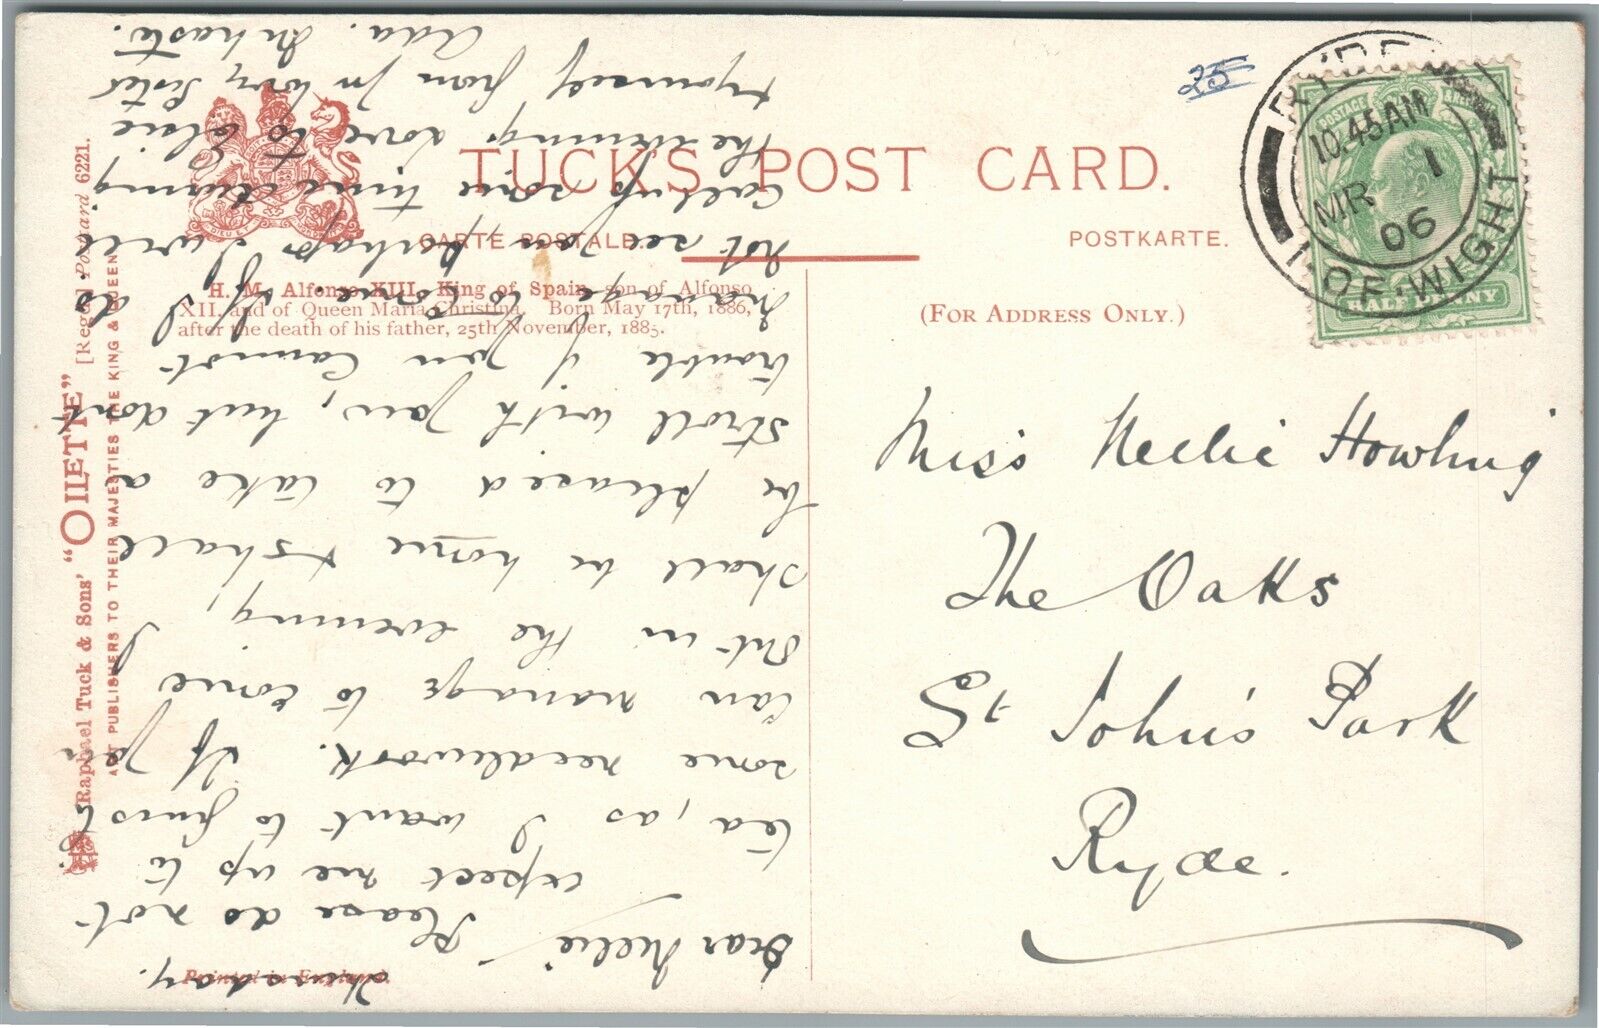 TUCK'S POST CARD.
CARTE POSTALE
POSTKARTE.
(FOR ADDRESS ONLY.)
H. M. Alfonso XIII., King of Spain, son of Alfonso
XII. and of Queen Maria Christina. Born May 17th, 1886,
after the death of his father, 25th November, 1885.
Raphael Tuck & Sons' "OILETTE" [Regd.] Postcard 6221.
ART PUBLISHERS TO THEIR MAJESTIES THE KING & QUEEN
Printed in England.
25
RYDE
10.45AM
MR 1
06
I. OF WIGHT
POSTAGE
HALF PENNY
Miss Nellie Howling
The Oaks
St John's Park
Ryde.
Thursday.
Dear Nellie Please do not
expect me up to
tea, as I want to finish
some needlework. If you
can manage to come
out in the evening, I
shall be home & shall
be pleased to take a
stroll with you, but dont
trouble if you cannot
manage to come. If I do
not see you perhaps I will
call up some time during
the evening. Love to Elsie
& yourself from Yr lovg Sister
Ada. In haste.